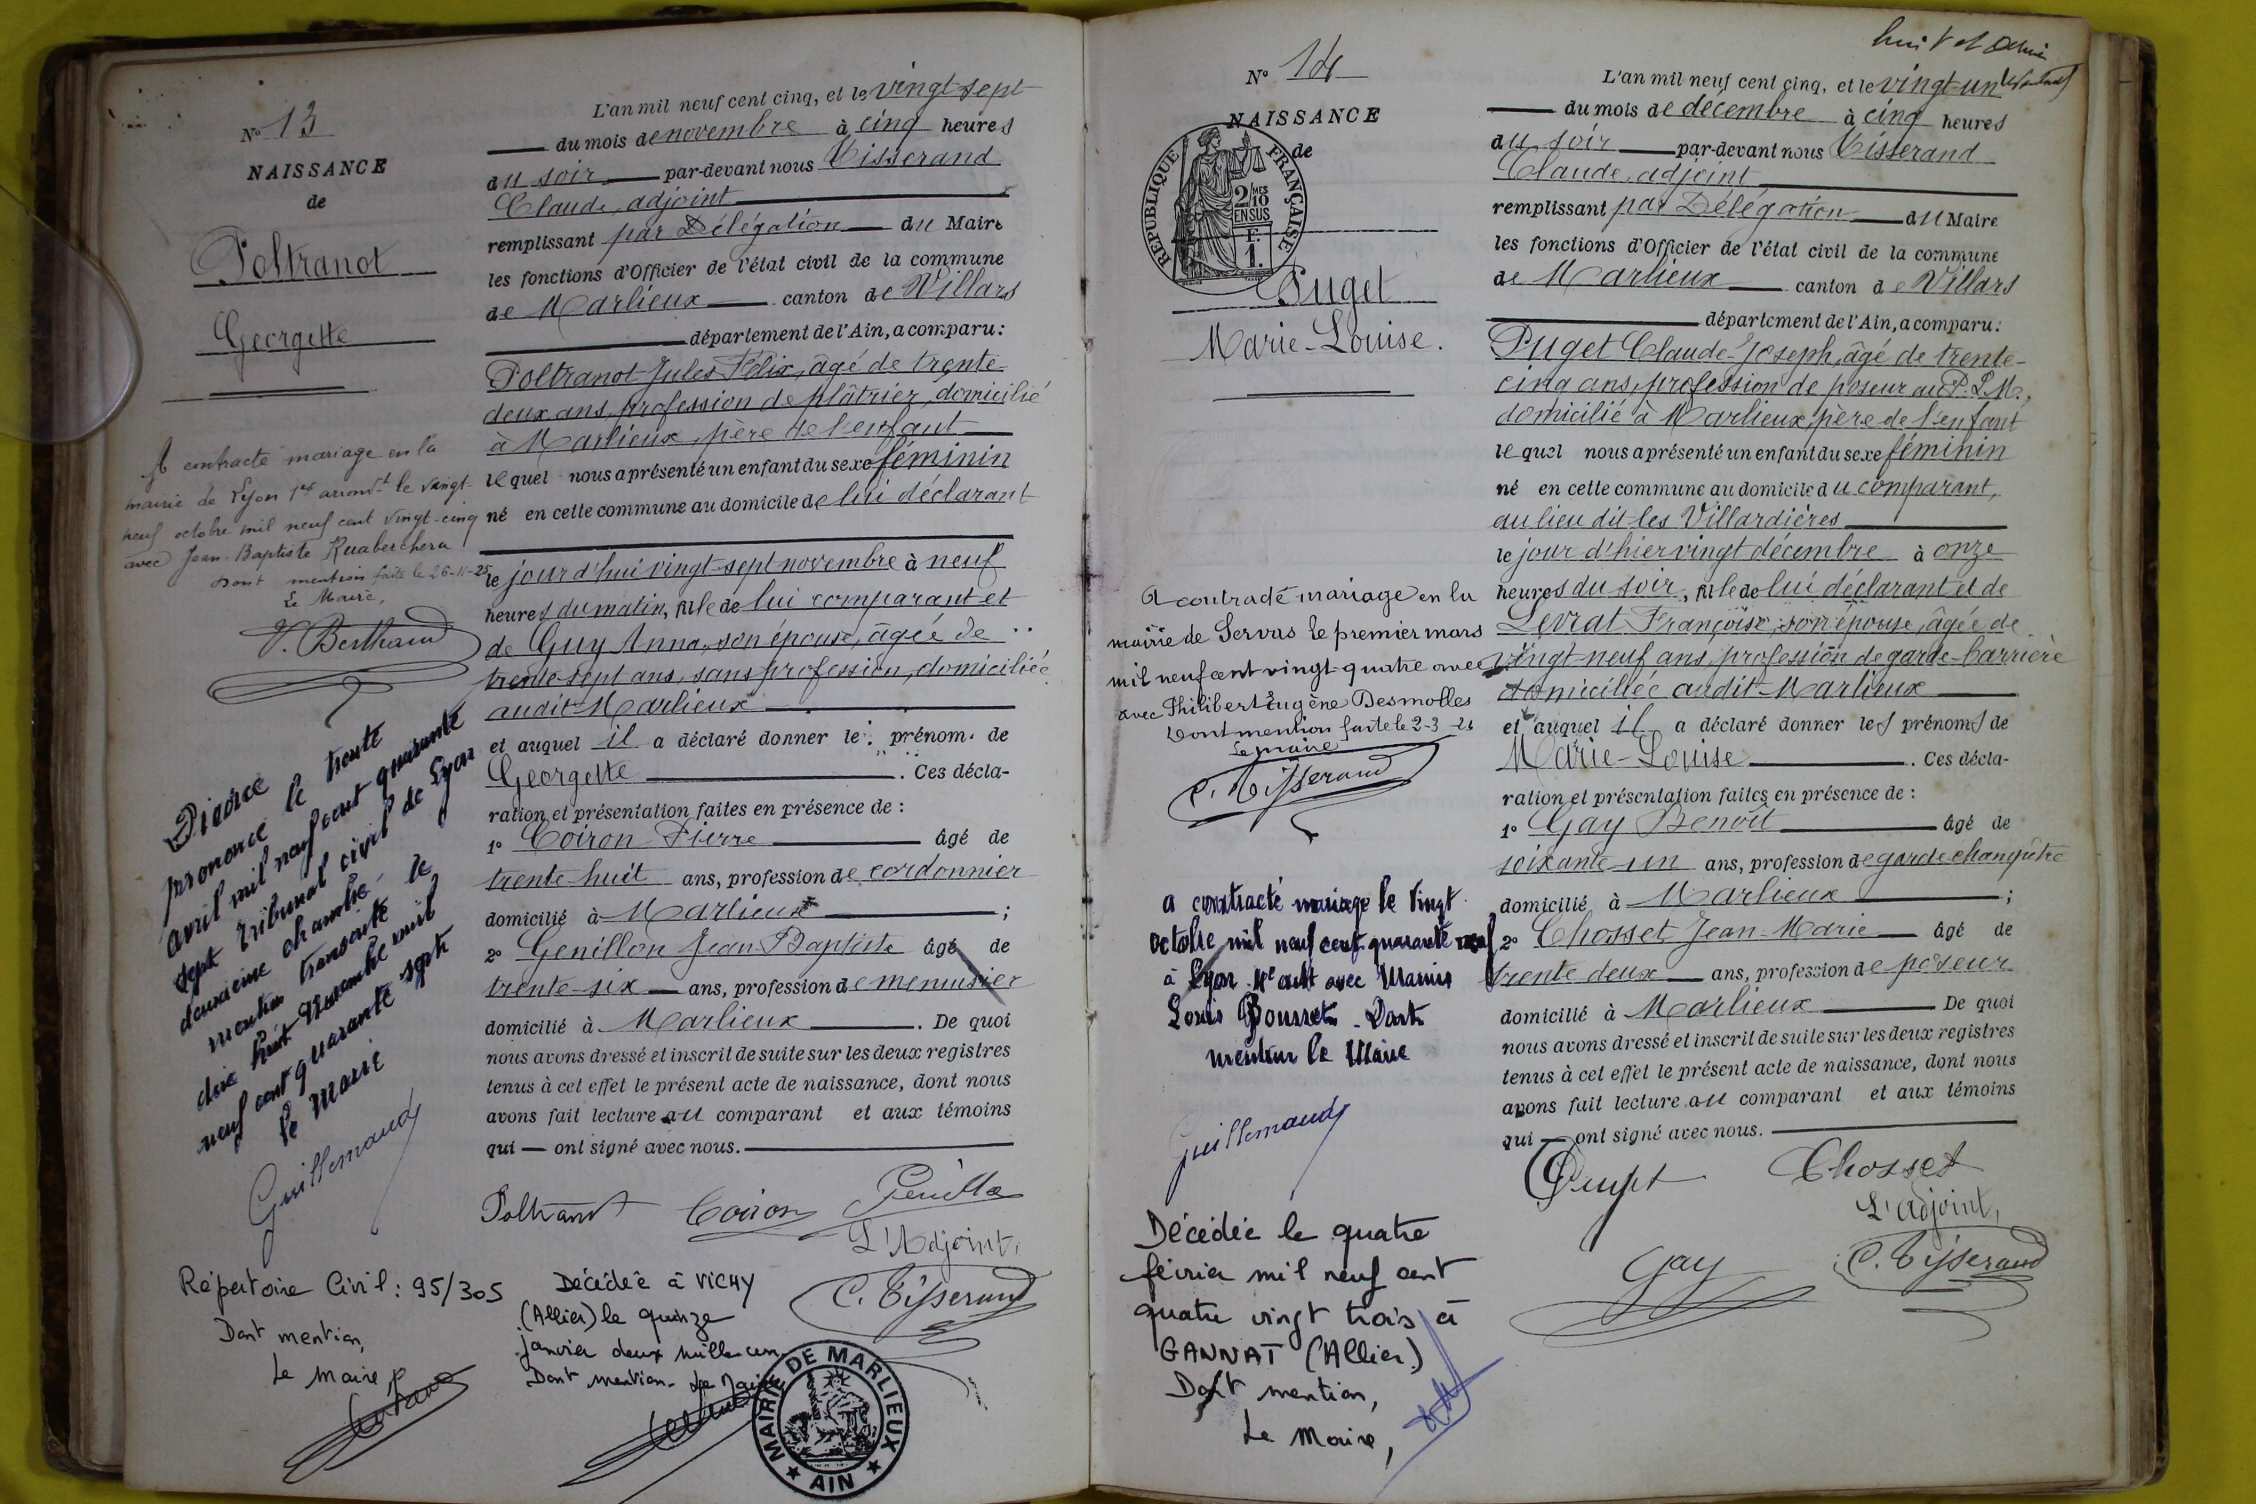 N° 13
NAISSANCE
de
Poltranot
Georgette
A contracté mariage en la
mairie de Lyon 1er arrondt le vingt-
neuf octobre mil neuf cent vingt-cinq
avec Jean-Baptiste
Dont mention faite le 26-11-25
Le Maire,
V. Berthaud
Divorce
prononcé le trente
avril mil neuf cent quarante
sept tribunal civil de Lyon
deuxième chambre
mention transcrite le
dix huit novembre mil
neuf cent quarante sept
le Maire
Guillemaud
Répertoire Civil : 95/305
Dont mention,
Le Maire
L'an mil neuf cent cinq, et le vingt-sept
du mois de novembre à cinq heures
du soir par-devant nous Tisserand
Claude, adjoint
remplissant par Délégation du Maire
les fonctions d'Officier de l'état civil de la commune
de Marlieux canton de Villars
département de l'Ain, a comparu :
Poltranot Jules Félix, âgé de trente-
deux ans, profession de plâtrier, domicilié
à Marlieux, père de l'enfant
lequel nous a présenté un enfant du sexe féminin
né en cette commune au domicile de lui déclarant
le jour d'hui vingt-sept novembre à neuf
heures du matin, fille de lui comparant et
de Guy Anna, son épouse, âgée de
trente-sept ans, sans profession, domiciliée
audit Marlieux
et auquel il a déclaré donner le prénom de
Georgette. Ces décla-
ration et présentation faites en présence de :
1° Coiron Pierre âgé de
trente-huit ans, profession de cordonnier
domicilié à Marlieux ;
2° Genillon Jean-Baptiste âgé de
trente-six ans, profession de menuisier
domicilié à Marlieux. De quoi
nous avons dressé et inscrit de suite sur les deux registres
tenus à cet effet le présent acte de naissance, dont nous
avons fait lecture au comparant et aux témoins
qui — ont signé avec nous.
Poltranot Coiron Genillon
L'Adjoint,
C. Tisserand
Décédée à VICHY
(Allier) le quinze
janvier deux mille un
Dont mention. Le Maire
MAIRIE DE MARLIEUX
★ AIN ★
N° 14
NAISSANCE
de
RÉPUBLIQUE FRANÇAISE
2/10 MES
EN SUS
F.
1.
Puget
Marie-Louise.
A contracté mariage en la
mairie de Servas le premier mars
mil neuf cent vingt-quatre avec
avec Philibert Eugène Desmolles
Dont mention faite le 2-3-24
Le maire
C. Tisserand
a contracté mariage le vingt
octobre mil neuf cent quarante neuf
à Lyon
Louis Dont
mention le Maire
Guillemaud
Décédée le quatre
février mil neuf cent
quatre vingt trois à
GANNAT (Allier)
Dont mention,
Le Maire,
L'an mil neuf cent cinq, et le vingt-un
du mois de décembre à cinq heures
du soir par-devant nous Tisserand
Claude, adjoint
remplissant par Délégation du Maire
les fonctions d'Officier de l'état civil de la commune
de Marlieux canton de Villars
département de l'Ain, a comparu :
Puget Claude-Joseph, âgé de trente-
cinq ans, profession de poseur au P.L.M.,
domicilié à Marlieux, père de l'enfant
lequel nous a présenté un enfant du sexe féminin
né en cette commune au domicile du comparant,
au lieu dit les Villardières
le jour d'hier vingt décembre à onze
heures du soir, fille de lui déclarant et de
Levrat Françoise, son épouse, âgée de
vingt-neuf ans, profession de garde-barrière
domiciliée audit Marlieux
et auquel il a déclaré donner les prénoms de
Marie-Louise. Ces décla-
ration et présentation faites en présence de :
1° Gay Benoît âgé de
soixante-un ans, profession de garde champêtre
domicilié à Marlieux ;
2° Chosset Jean-Marie âgé de
trente deux ans, profession de poseur
domicilié à Marlieux De quoi
nous avons dressé et inscrit de suite sur les deux registres
tenus à cet effet le présent acte de naissance, dont nous
avons fait lecture au comparant et aux témoins
qui — ont signé avec nous.
Puget Chosset
L'adjoint,
Gay C. Tisserand